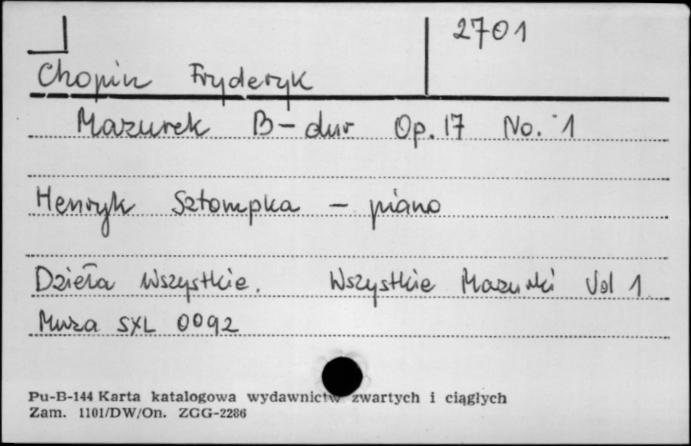 2701
Chopin Fryderyk
Mazurek B-dur Op. 17 No. 1
Henryk Sztompka - piano
Dzieła Wszystkie. Wszystkie Mazurki Vol 1
Muza SXL 0092
Pu-B-144 Karta katalogowa wydawnictw zwartych i ciągłych
Zam. 1101/DW/On. ZGG-2286